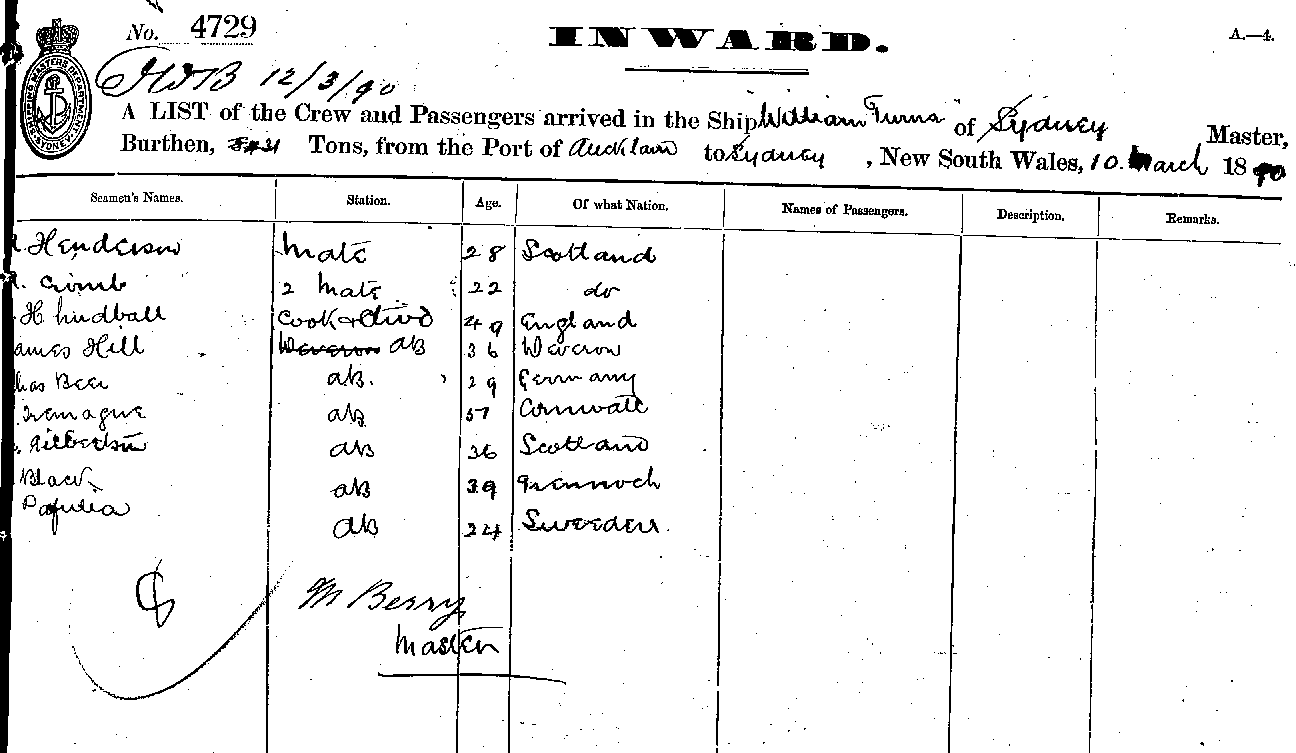 No. 4729
INWARD.
A.—4.
SHIPPING MASTERS DEPARTMENT SYDNEY
12/3/90
A LIST of the Crew and Passengers arrived in the Ship William Turner of Sydney Master,
Burthen, Tons, from the Port of Auckland to Sydney, New South Wales, 10 March 1890
Seamen's Names. Station. Age. Of what Nation. Names of Passengers. Description. Remarks.
Henderson Mate 28 Scotland
2 Mate 22 do
H Cook & Stwd 49 England
ames Hill ab 36
has Beer ab. 29 Germany
ab 57 Cornwall
Gilbertson ab 36 Scotland
Black ab 39 Greenock
ab 24 Sweeden
M Berry
Master